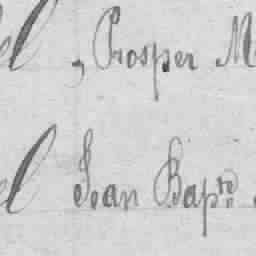 , Prosper M
Jean Bap.te